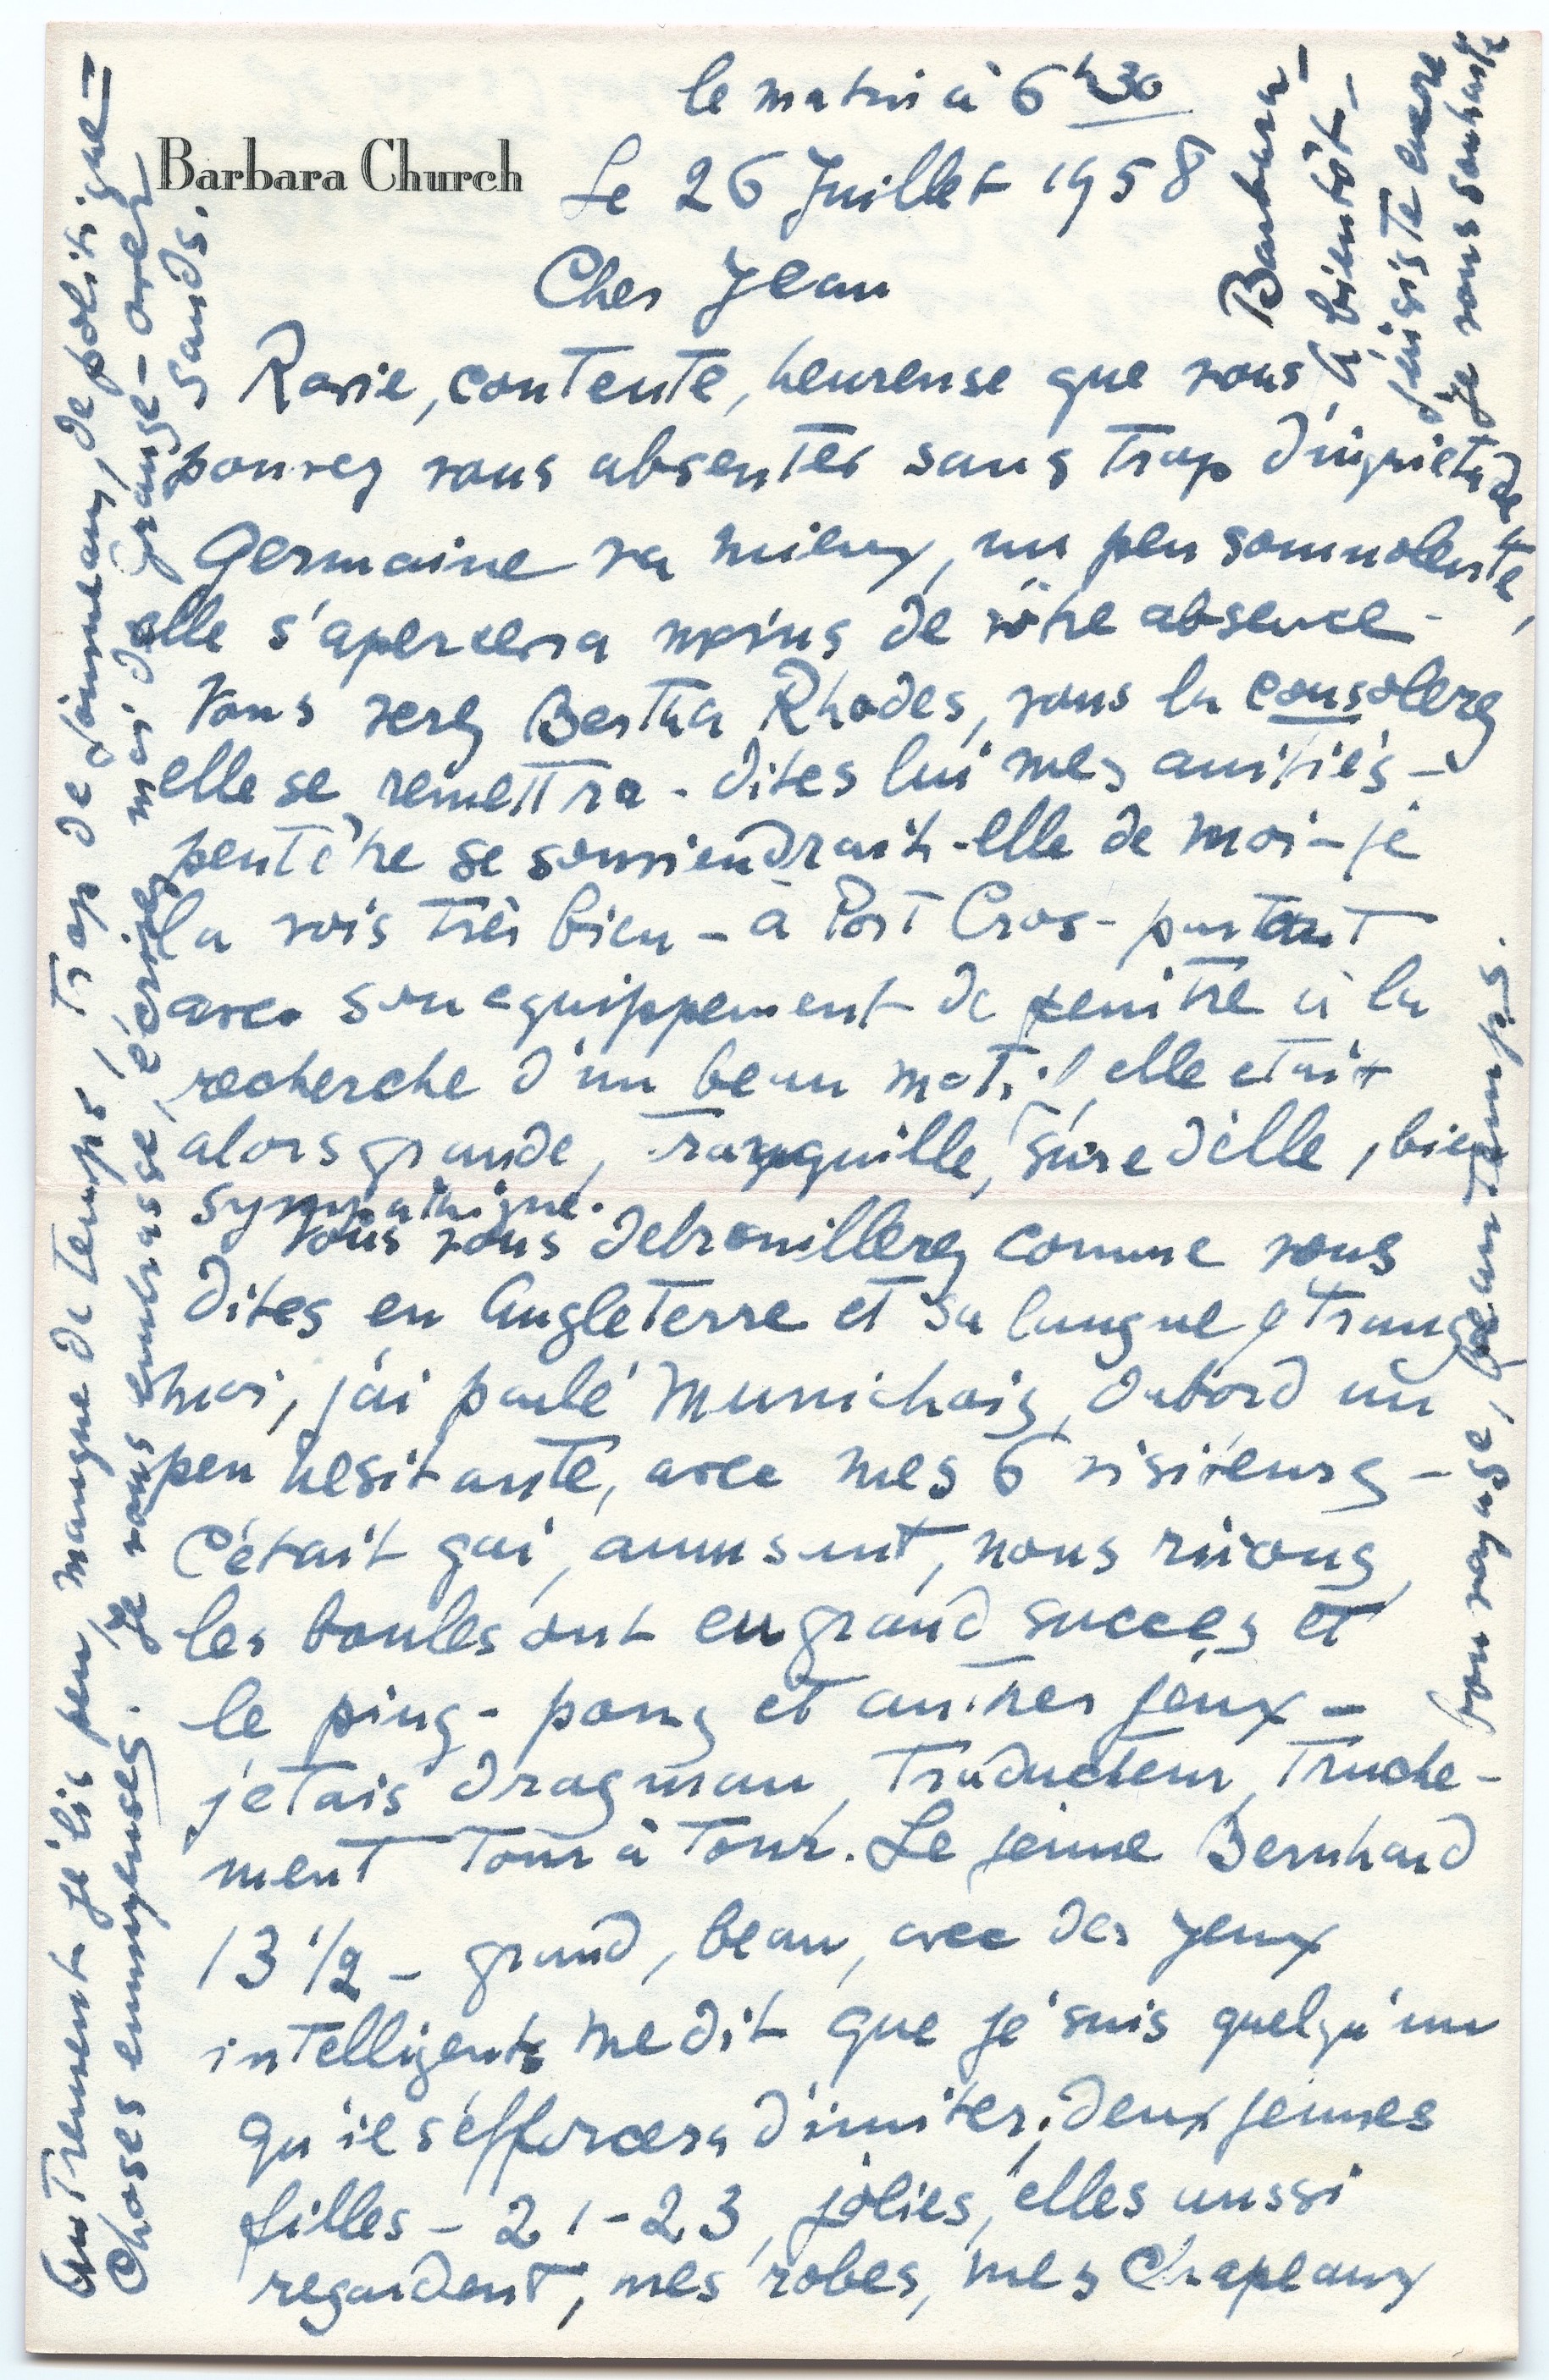 le matin à 6h30
Barbara Church
Le 26 Juillet 1958
Cher Jean
Ravie, contente, heureuse que vous
pouvez vous absenter sans trop d'inquietude
Germaine va mieux, un peu somnolente,
elle s'apercevra moins de vôtre absence -
Vous verez Bertha Rhodes, vous la consolerez
elle se remettra - dites lui mes amitiés -
peutêtre se souviendrait-elle de moi - je
la vois très bien - à Port Cros - partant
avec son equippement de peintre à la
recherche d'un beau motif, elle etait
alors grande, tranquille, sûre d'elle, bien
sympathique.
Vous vous debrouillerez comme vous
dites en Angleterre et sa langue etrange
moi, j'ai parlé Munichois, dabord un
peu hesitante, avec mes 6 visiteurs -
C'était gai, amusant, nous riions,
les boules ont eu grand succes et
le ping-pong et autres jeux -
j'etais dragman, traducteur, truche-
ment tour à tour. Le jeune Bernhard
13 1/2 - grand, beau, avec des yeux
intelligents me dit que je suis quelqu'un
qu'il s'efforcera d'imiter; deux jeunes
filles - 21-23, jolies, elles aussi
regardent, mes robes, mes Chapeaux
Autrement je lis peu, manque de temps, trop de journeaux, de politique -
Choses ennuyeuses. Je vous embrasse, écrivez moi de grange - over
sands.
bon voyage, beau temps.
Je vous souhaite
j'insiste encore
A bientôt -
Barbara -